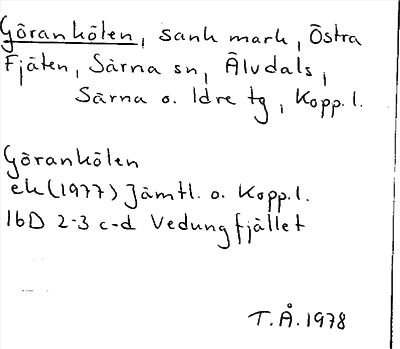 Görankölen, sank mark, Östra
Fjäten, Särna sn, Älvdals,
Särna o. Idre tg, Kopp. l.
Görankölen
ek (1977) Jämtl. o. Kopp. l.
16D 2-3 c-d Vedungfjället
T.Å. 1978